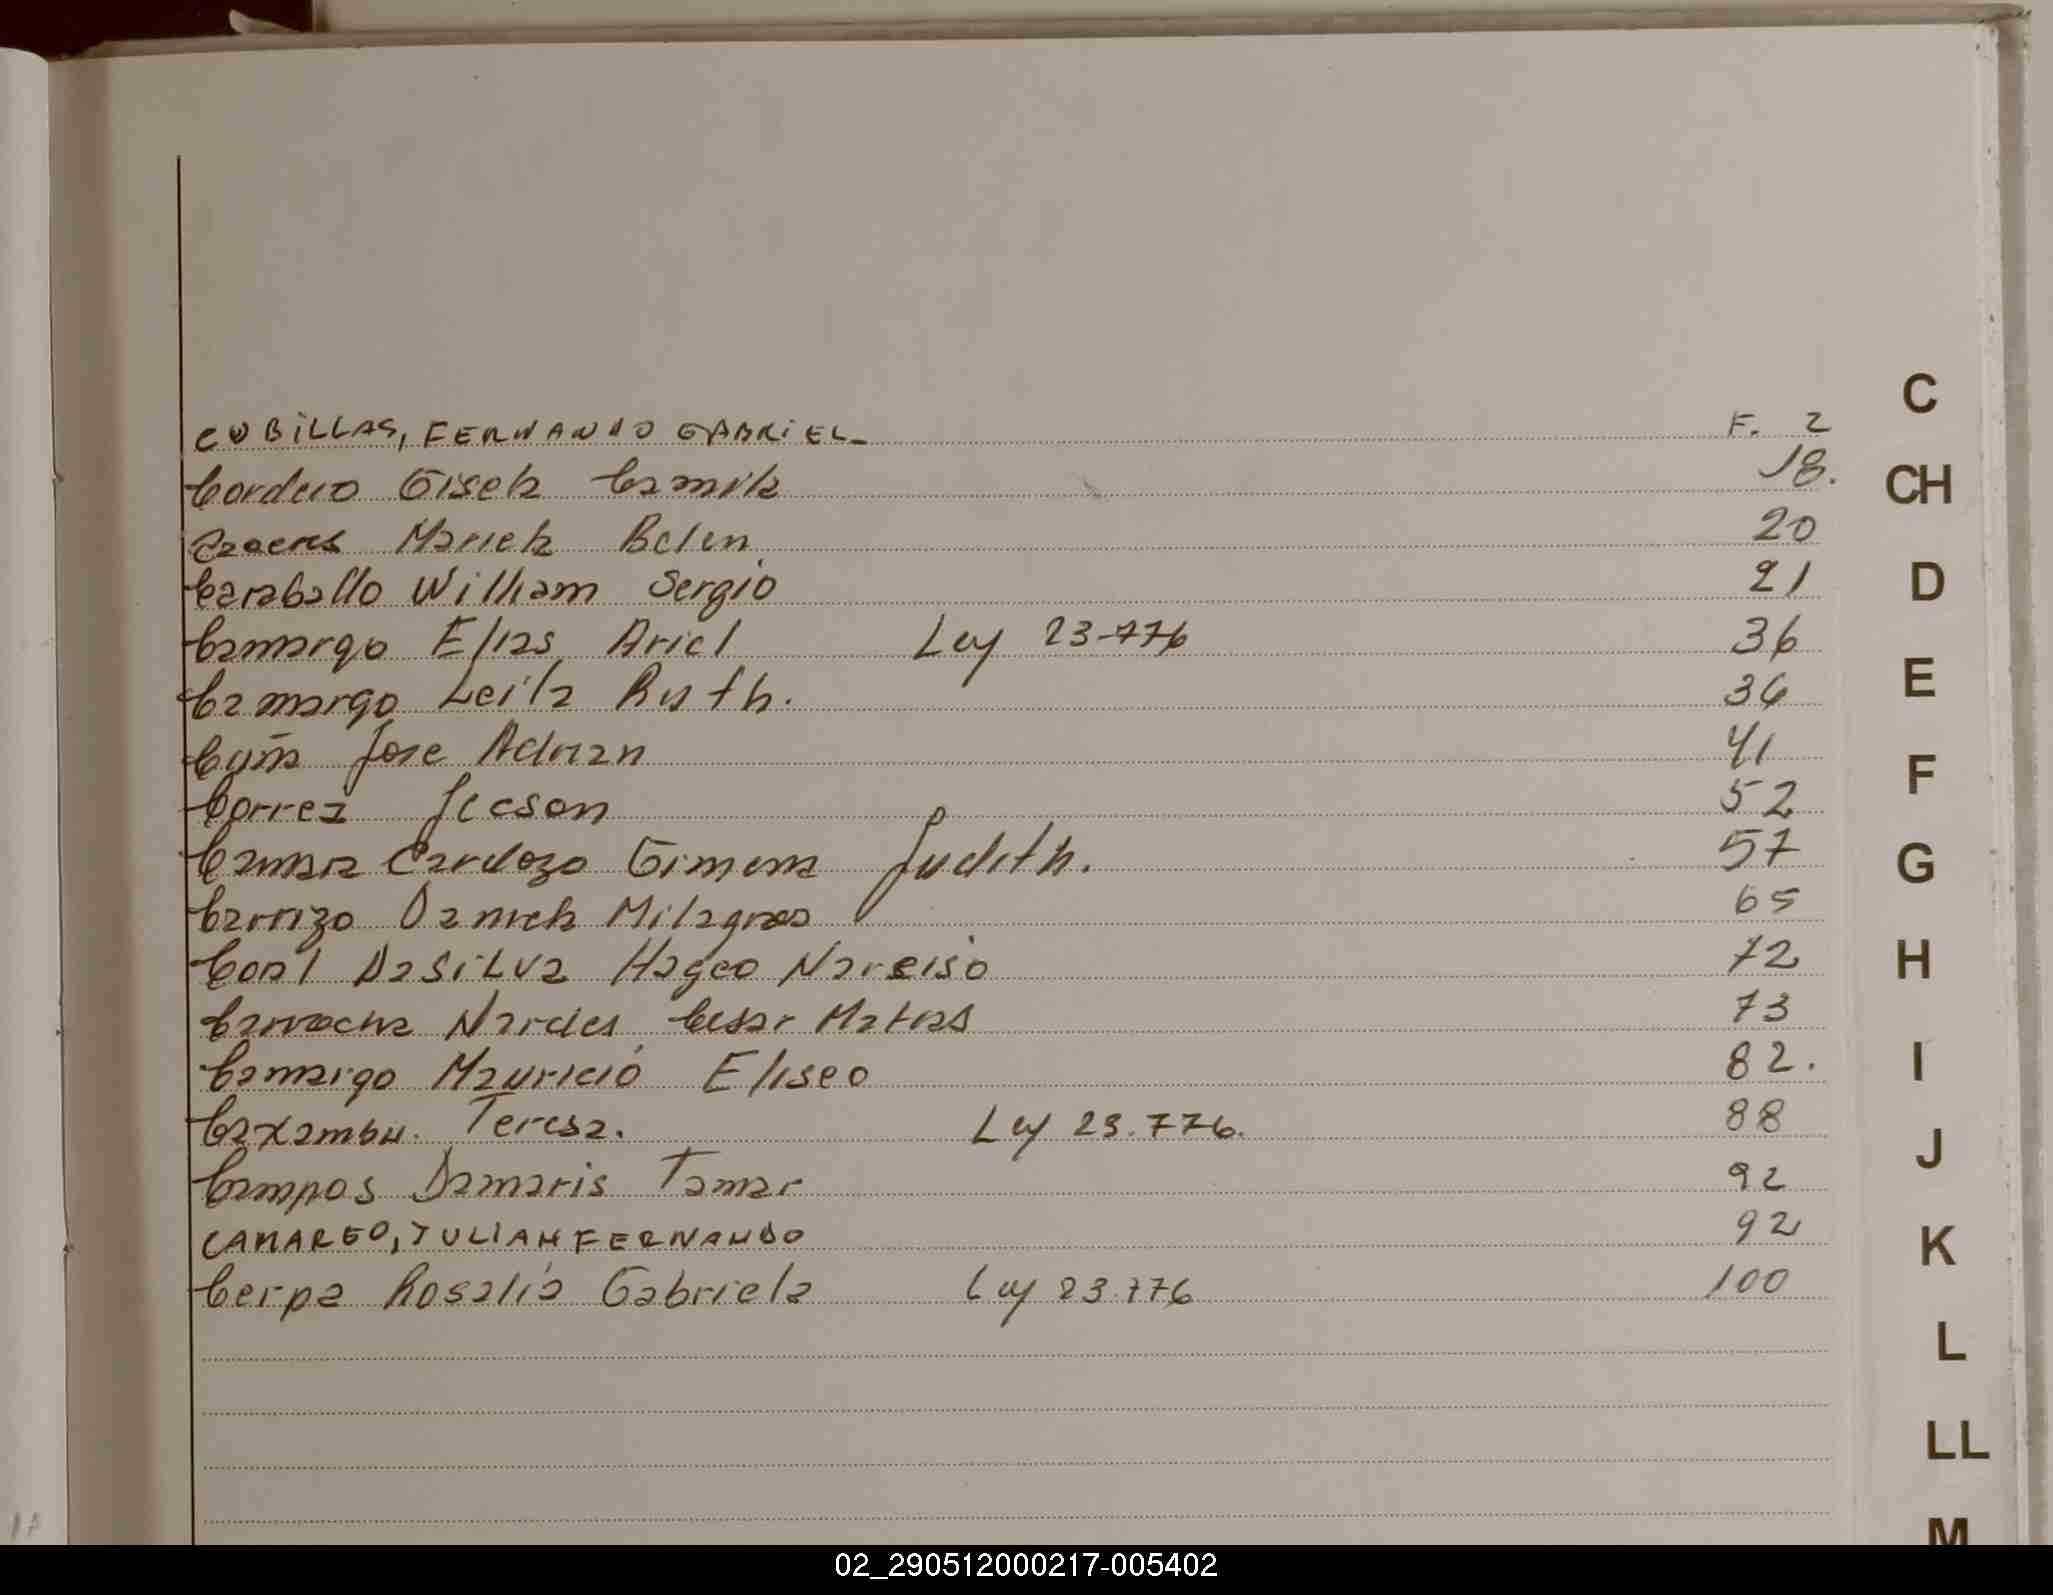 CUBILLAS, FERNANDO GABRIEL F. 2
Cordero Gisela Camila 18.
Mariela Belen 20
Caraballo William Sergio 21
Camargo Elias Ariel Ley 23-776 36
Camargo Leila Ruth. 36
José Adrian 41
Correa Jecson 52
Cardozo Gimena Judith. 57
Carrizo Daniela Milagros 65
Dasilva Hageo Narciso 72
Cesar Matias 73
Camargo Mauricio Eliseo 82.
Caxambu. Teresa. Ley 23.776. 88
Campos Damaris Tamar 92
CAMARGO, JULIAN FERNANDO 92
Cerpa Rosalía Gabriela Ley 23.776 100
C
CH
D
E
F
G
H
I
J
K
L
LL
M
02_290512000217-005402